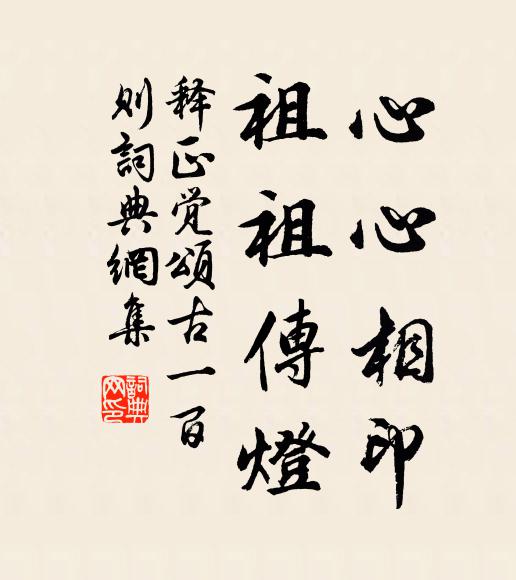 心心相印
祖祖傳燈
释正覚頌古一百
则詞典網集
詞典
网印